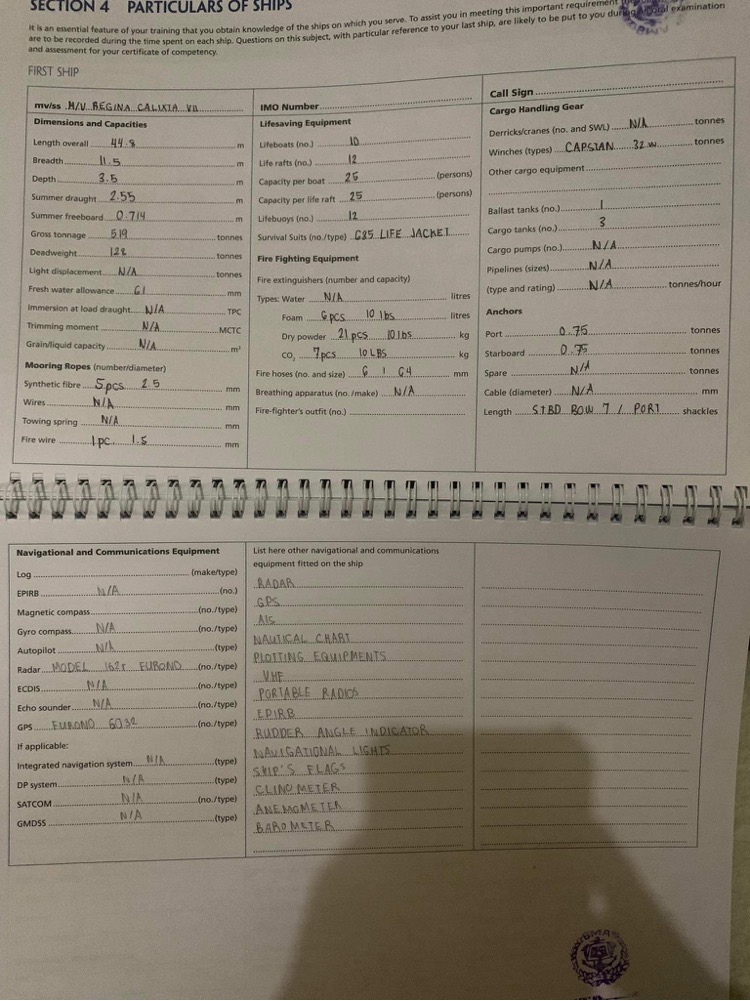 SECTION 4 PARTICULARS OF SHIPS
It is an essential feature of your training that you obtain knowledge of the ships on which you serve. To assist you in meeting this important requirement
are to be recorded during the time spent on each ship. Questions on this subject, with particular reference to your last ship, are likely to be put to you during examination
and assessment for your certificate of competency.
FIRST SHIP
mv/ss M/V REGINA CALIXTA VII
Dimensions and Capacities
Length overall 44.8 m
Breadth 11.5 m
Depth 3.5 m
Summer draught 2.55 m
Summer freeboard 0.714 m
Gross tonnage 519 tonnes
Deadweight 128 tonnes
Light displacement N/A tonnes
Fresh water allowance 61 mm
Immersion at load draught N/A TPC
Trimming moment N/A MCTC
Grain/liquid capacity N/A m³
Mooring Ropes (number/diameter)
Synthetic fibre 5pcs 2.5 mm
Wires N/A mm
Towing spring N/A mm
Fire wire 1pc. 1.5 mm
IMO Number
Lifesaving Equipment
Lifeboats (no.) 10
Life rafts (no.) 12
Capacity per boat 25 (persons)
Capacity per life raft 25 (persons)
Lifebuoys (no.) 12
Survival Suits (no./type) 685 LIFE JACKET
Fire Fighting Equipment
Fire extinguishers (number and capacity)
Types: Water N/A litres
Foam 6pcs 10 lbs litres
Dry powder 21pcs 10lbs kg
CO₂ 7pcs 10LBS kg
Fire hoses (no. and size) 6 / 64 mm
Breathing apparatus (no./make) N/A
Fire-fighter's outfit (no.)
Call Sign
Cargo Handling Gear
Derricks/cranes (no. and SWL) N/A tonnes
Winches (types) CAPSTAN 32 w tonnes
Other cargo equipment
Ballast tanks (no.) 1
Cargo tanks (no.) 3
Cargo pumps (no.) N/A
Pipelines (sizes) N/A
(type and rating) N/A tonnes/hour
Anchors
Port 0.75 tonnes
Starboard 0.75 tonnes
Spare N/A tonnes
Cable (diameter) N/A mm
Length STBD BOW 7 / PORT shackles
Navigational and Communications Equipment
Log (make/type)
EPIRB N/A (no.)
Magnetic compass (no./type)
Gyro compass N/A (no./type)
Autopilot N/A (type)
Radar MODEL 1623 FURONO (no./type)
ECDIS N/A (no./type)
Echo sounder N/A (no./type)
GPS FURONO 6032 (no./type)
If applicable:
Integrated navigation system N/A (type)
DP system N/A (type)
SATCOM N/A (no./type)
GMDSS N/A (type)
List here other navigational and communications
equipment fitted on the ship
RADAR
GPS
AIS
NAUTICAL CHART
PLOTTING EQUIPMENTS
VHF
PORTABLE RADIOS
EPIRB
RUDDER ANGLE INDICATOR
NAVIGATIONAL LIGHTS
SHIP'S FLAGS
CLINOMETER
ANEMOMETER
BAROMETER